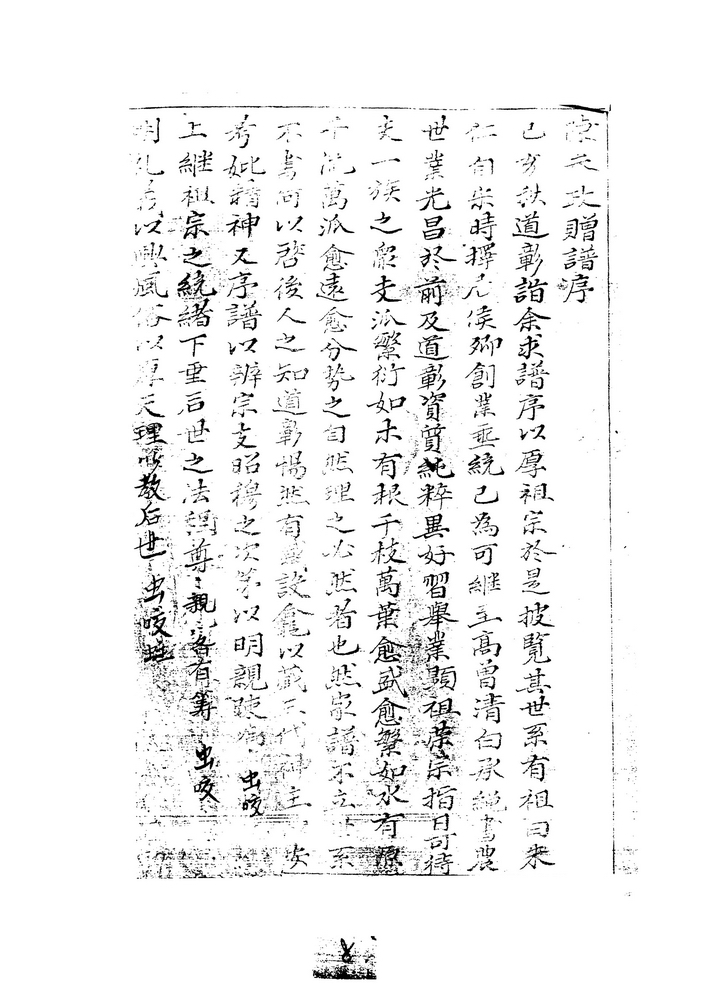 陳天政贈譜序
己亥秋道彰詣余求譜序以厚祖宗於是披覽其世系有祖曰来
仁自宋時擇居侯卿創業垂統已為可継至高曽清白承純書農
世業光昌於前及道彰資質純粹異好習舉業顕祖荣宗指日可待
夫一族之衆支派繁衍如木有根千枝萬葉愈盛愈繁如水有源
千流萬派愈遠愈分势之自然理之必然者也然家譜不立世系
不書何以啓後人之知道彰惕然有 設龕以藏三代神主 安
考妣精神又序譜以辨宗支昭穆之次第以明親疎 虫咬
上継祖宗之統緒下垂后世之法 尊﹑親﹑各有等 虫咬
明礼 以興風俗以厚天理 教后世 虫咬 蛀